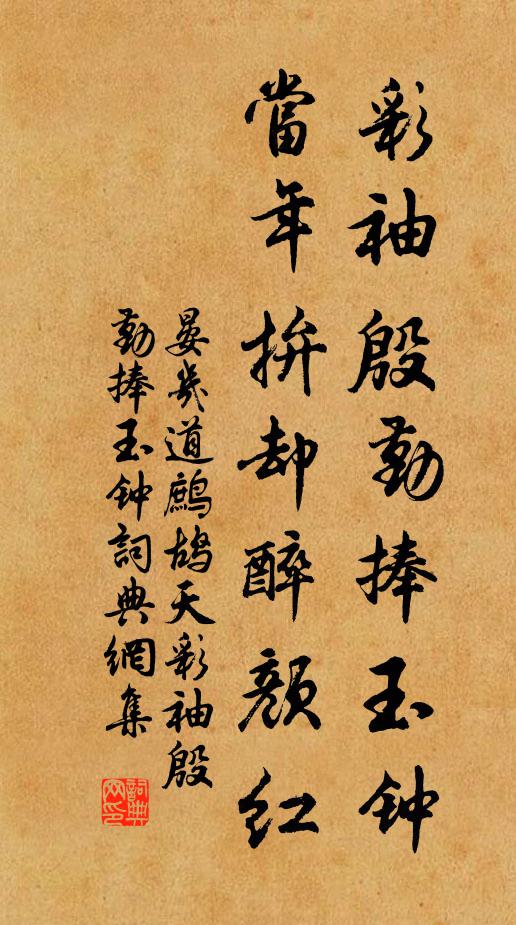 彩袖殷勤捧玉钟
當年拚却醉顏紅
晏幾道鷓鴣天彩袖殷
勤捧玉钟詞典網集
詞典
网印